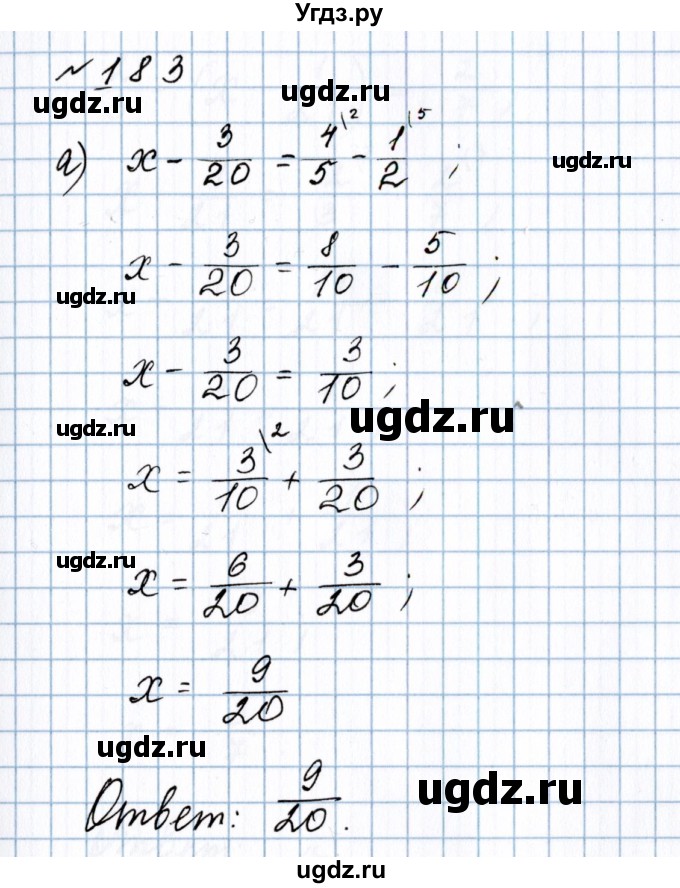 Угдз.ру
№ 183
ugdz.ru ugdz.ru
а) x - 3/20 = 4/5 \2 - 1/2 \5 ; ugdz.ru
x - 3/20 = 8/10 - 5/10 ;
ugdz.ru
x - 3/20 = 3/10 ;
ugdz.ru ugdz.ru
x = 3/10 \2 + 3/20 ;
ugdz.ru
x = 6/20 + 3/20 ;
x = 9/20
ugdz.ru
Ответ: 9/20. ugdz.ru
ugdz.ru